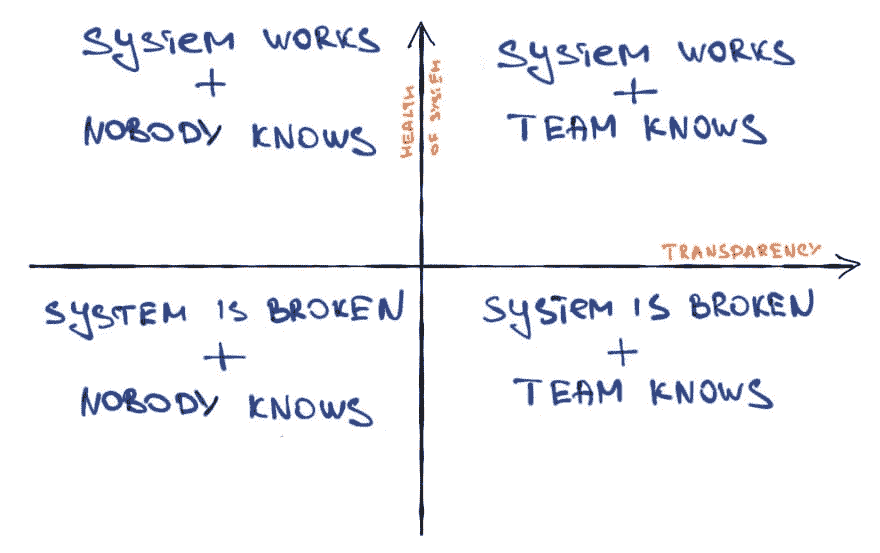 SYSTEM WORKS
+
NOBODY KNOWS
HEALTH
OF SYSTEM
SYSTEM WORKS
+
TEAM KNOWS
TRANSPARENCY
SYSTEM IS BROKEN
+
NOBODY KNOWS
SYSTEM IS BROKEN
+
TEAM KNOWS